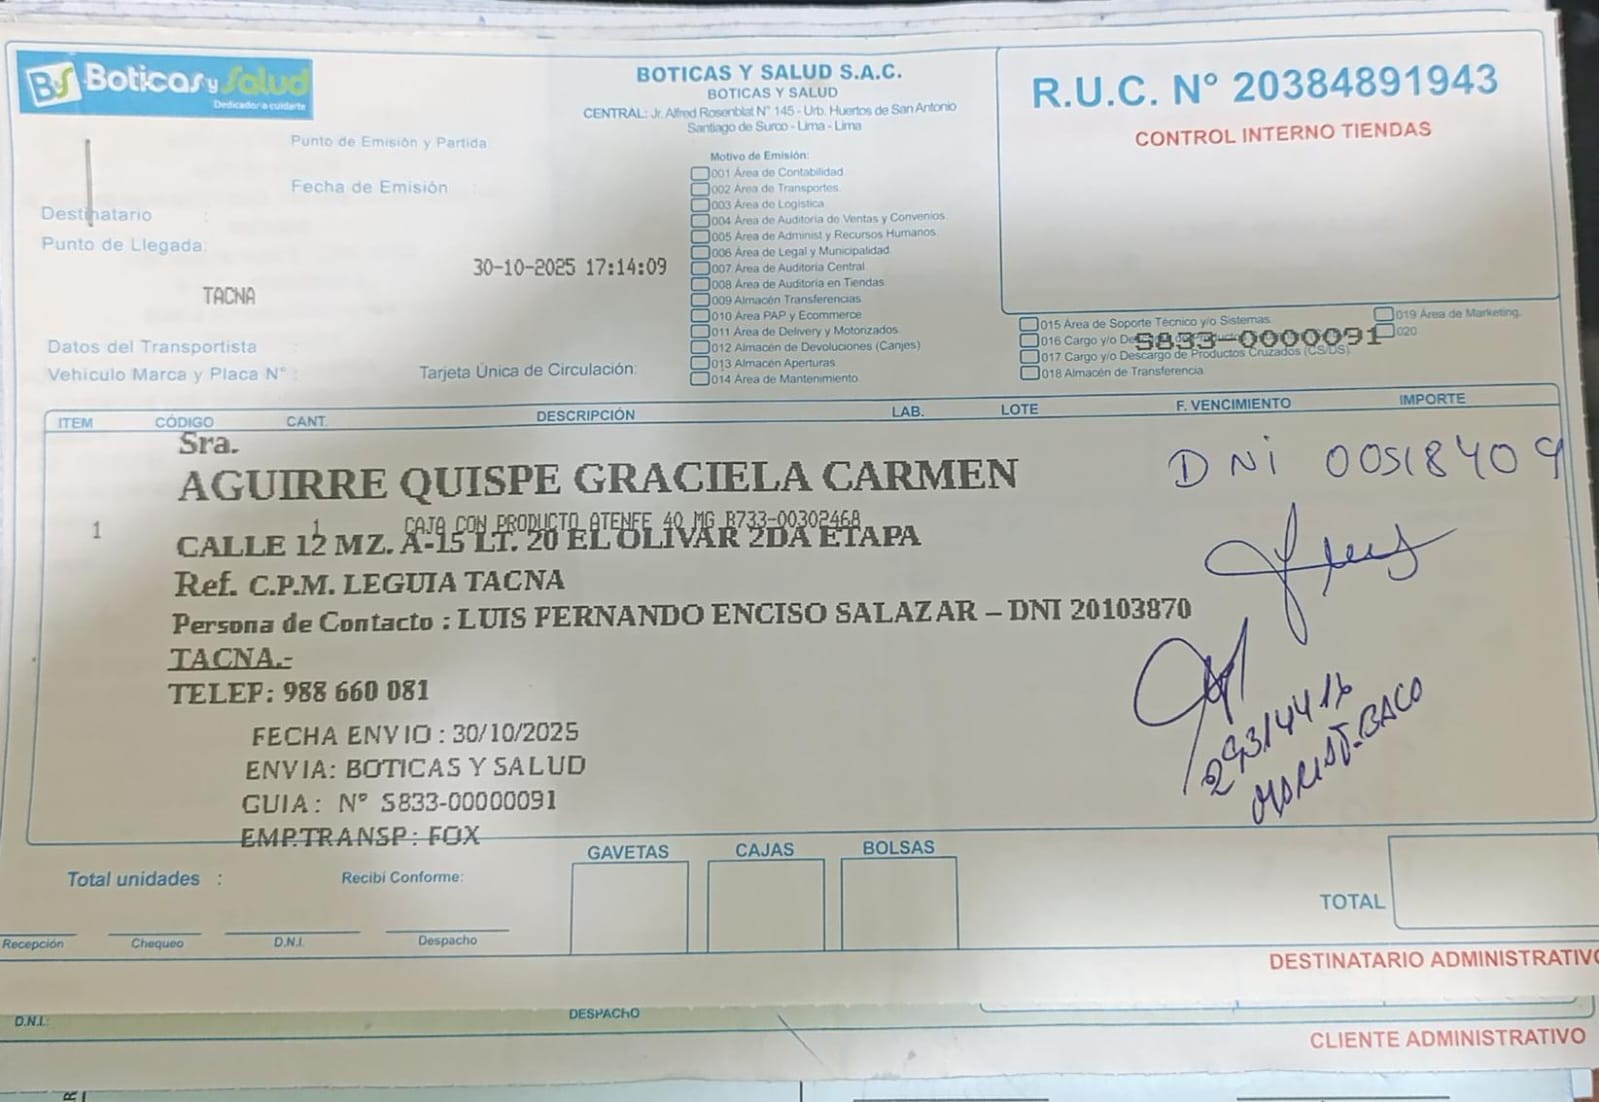 BS Boticas y Salud
Dedicados a cuidarte
BOTICAS Y SALUD S.A.C.
BOTICAS Y SALUD
CENTRAL: Jr. Alfred Rosenblat N° 145 - Urb. Huertos de San Antonio
Santiago de Surco - Lima - Lima
R.U.C. N° 20384891943
CONTROL INTERNO TIENDAS
Punto de Emisión y Partida
Fecha de Emisión :
Destinatario :
Punto de Llegada:
30-10-2025 17:14:09
TACNA
Datos del Transportista
Vehiculo Marca y Placa N° :
Tarjeta Única de Circulación:
Motivo de Emisión:
001 Área de Contabilidad
002 Área de Transportes.
003 Área de Logística
004 Área de Auditoria de Ventas y Convenios.
005 Área de Administ y Recursos Humanos.
006 Área de Legal y Municipalidad.
007 Área de Auditoria Central
008 Área de Auditoria en Tiendas
009 Almacén Transferencias
010 Área PAP y Ecommerce
011 Área de Delivery y Motorizados.
012 Almacén de Devoluciones (Canjes)
013 Almacén Aperturas.
014 Área de Mantenimiento.
015 Área de Soporte Técnico y/o Sistemas.
016 Cargo y/o
017 Cargo y/o Descargo de Productos Cruzados (CS/DS).
018 Almacén de Transferencia.
019 Área de Marketing.
020
S833-0000091
ITEM CÓDIGO CANT. DESCRIPCIÓN LAB. LOTE F. VENCIMIENTO IMPORTE
Sra.
AGUIRRE QUISPE GRACIELA CARMEN
DNI 00518409
1 1 CAJA CON PRODUCTO ATENFE 40 MG B733-00302468
CALLE 12 MZ. A-15 LT. 20 EL OLIVAR 2DA ETAPA
Ref. C.P.M. LEGUIA TACNA
Persona de Contacto : LUIS FERNANDO ENCISO SALAZAR – DNI 20103870
TACNA.-
TELEF: 988 660 081
FECHA ENVIO : 30/10/2025
ENVIA: BOTICAS Y SALUD
GUIA: N° S833-00000091
EMP.TRANSP: FOX
Total unidades :
Recibí Conforme:
GAVETAS CAJAS BOLSAS
TOTAL
Recepción Chequeo D.N.I. Despacho
DESTINATARIO ADMINISTRATIVO
D.N.I.:
DESPACHO
CLIENTE ADMINISTRATIVO